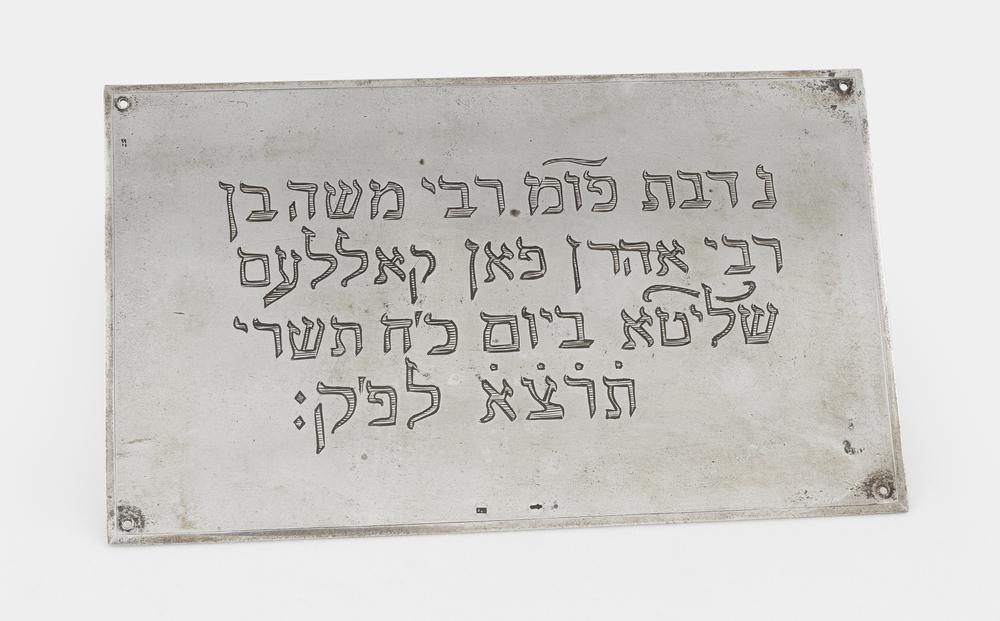 נדבת פומ רבי משה בן
רבי אהרן פאן קאללעם
שליטא ביום כ'ח תשרי
תרצא לפ'ק: